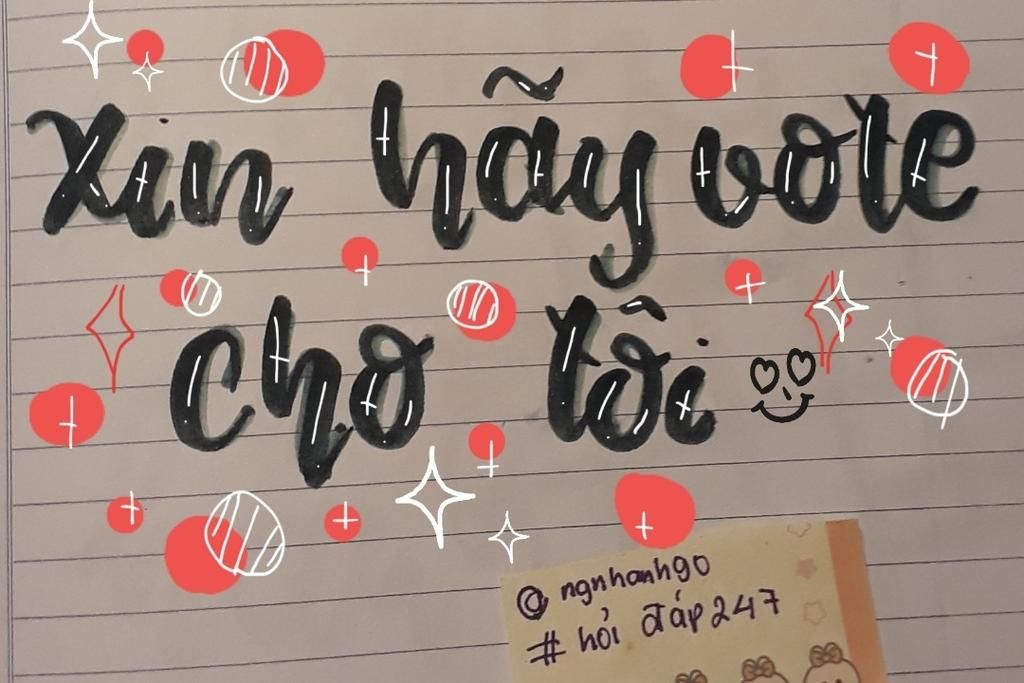 xin hãy vote
cho tôi
@ngnhanh90
# hỏi đáp 247